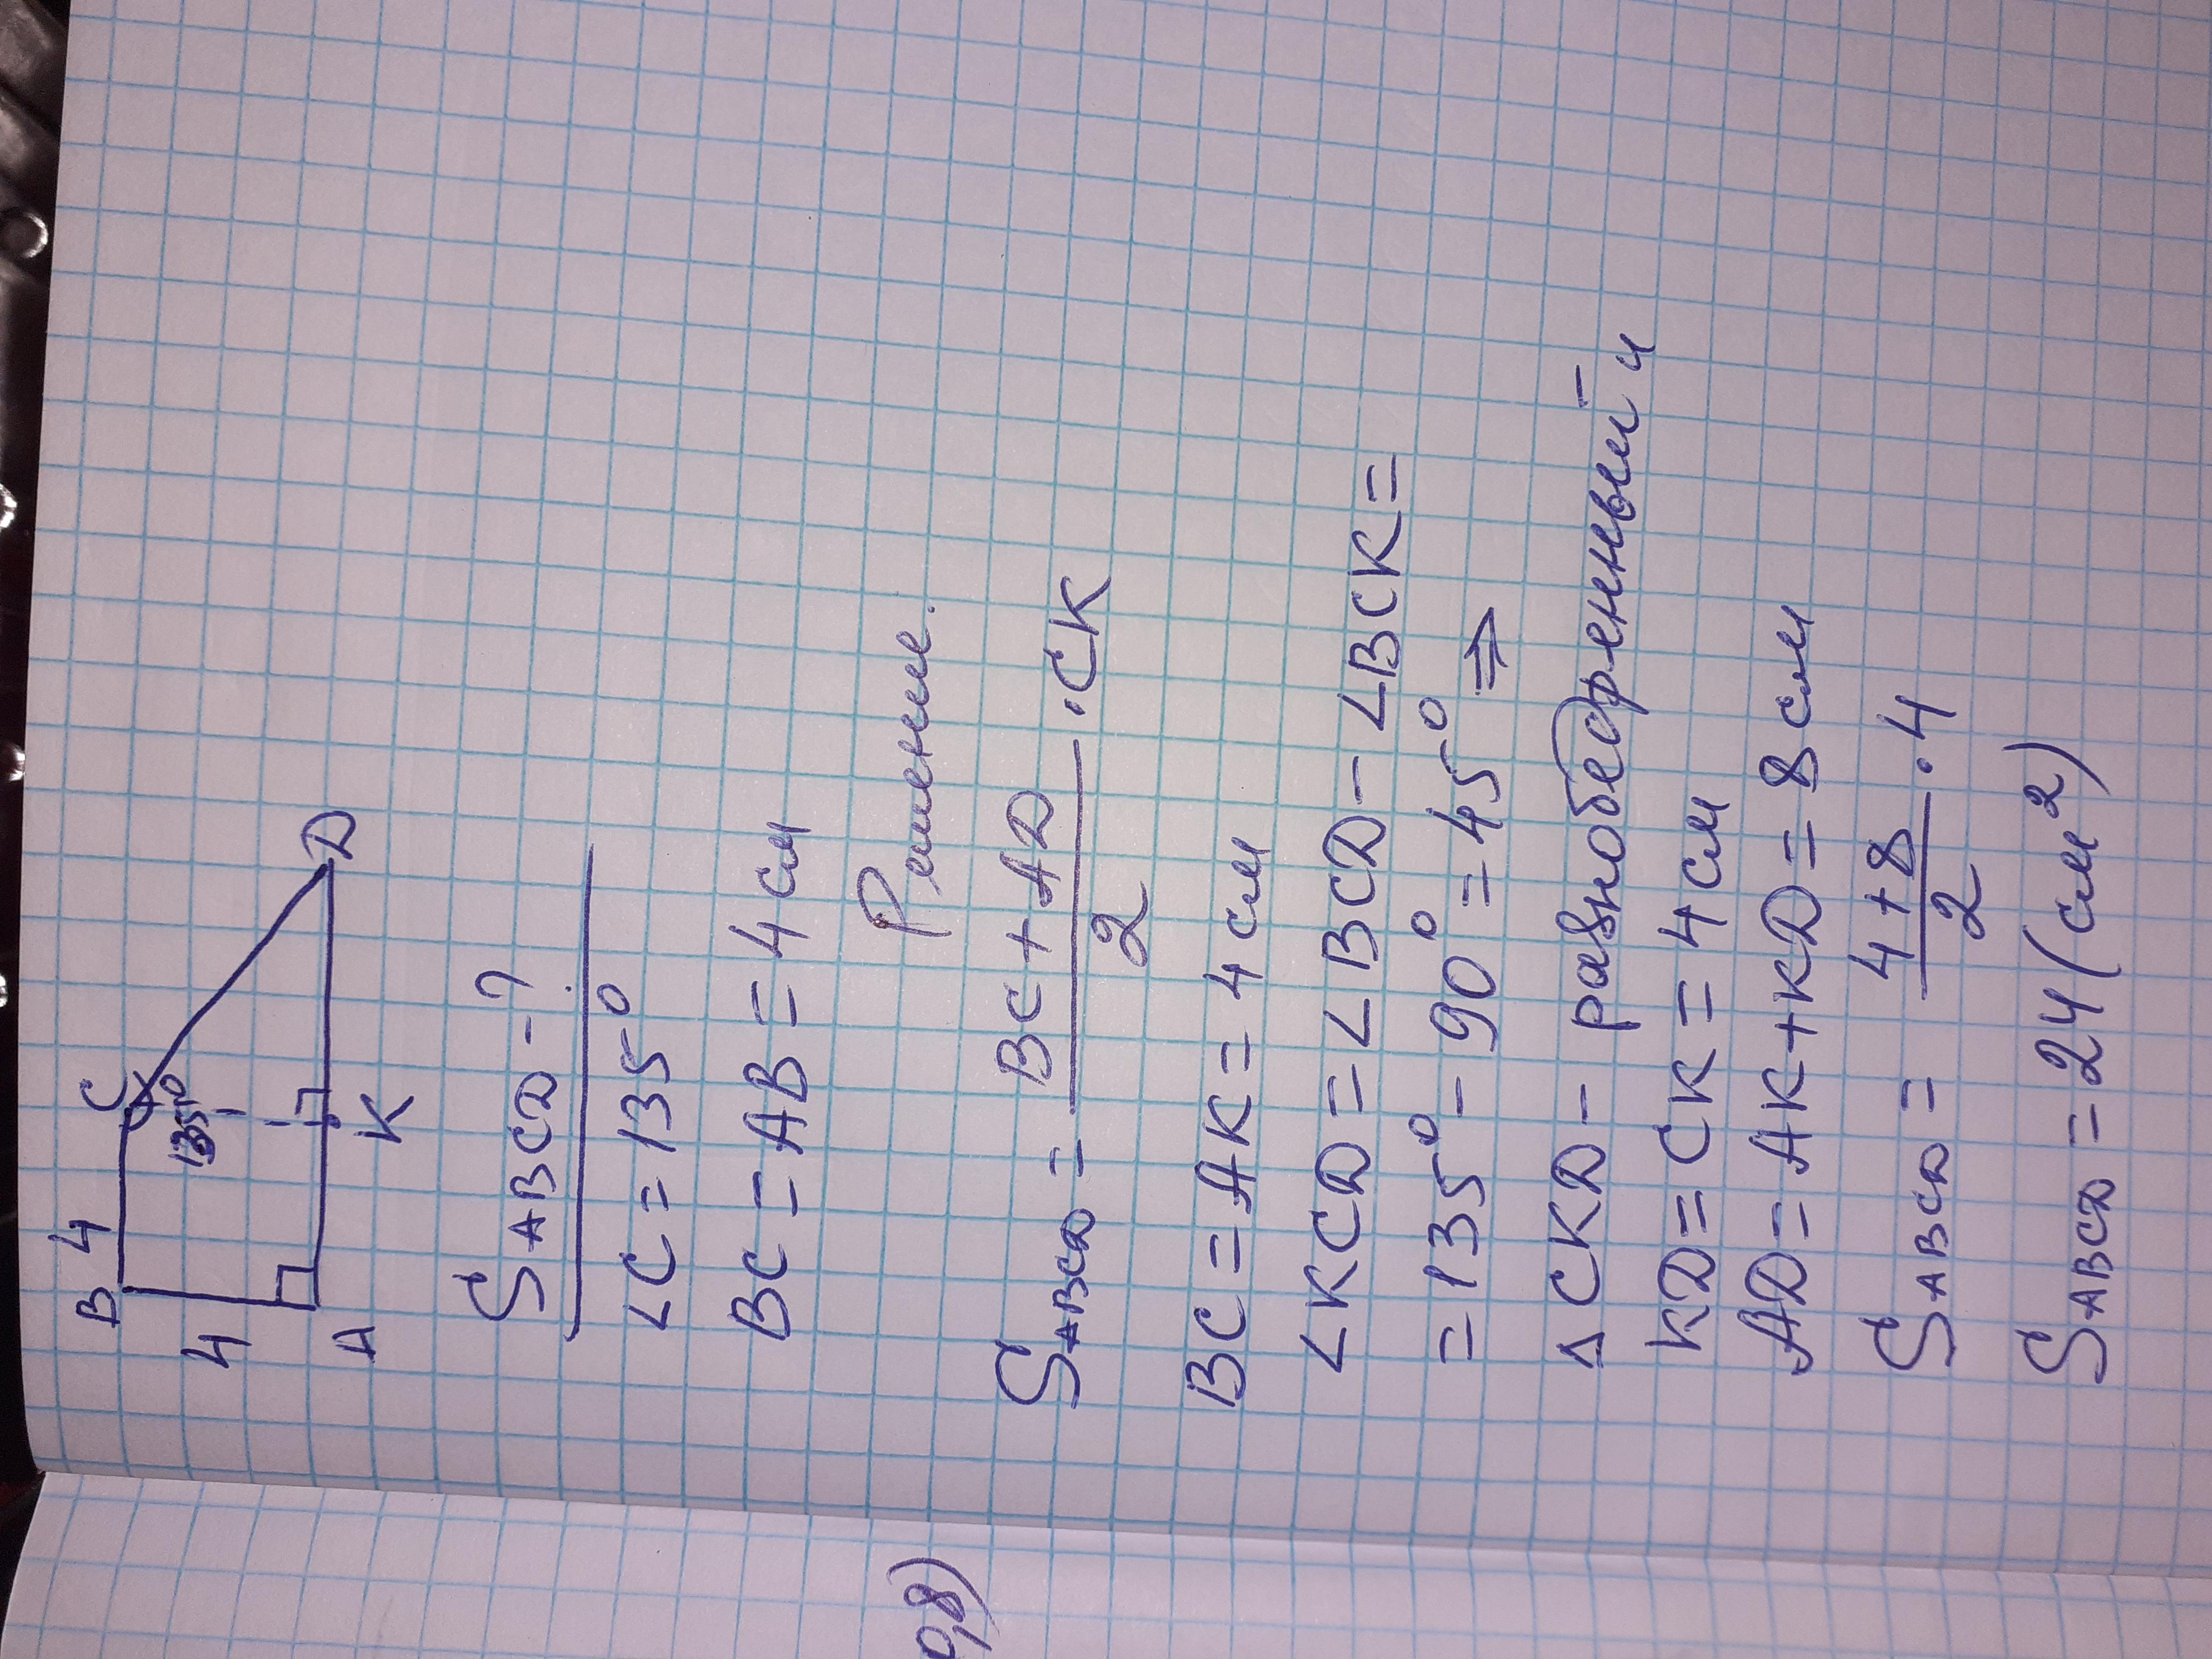 B 4 C
4
135°
A K D
S_ABCD - ?
∠C = 135°
BC = AB = 4 см
Решение.
S_ABCD = (BC + AD)/2 · CK
BC = AK = 4 см
∠KCD = ∠BCD - ∠BCK =
= 135° - 90° = 45° ⇒
Δ CKD - равнобедренный и
KD = CK = 4 см
AD = AK + KD = 8 см
S_ABCD = (4 + 8)/2 · 4
S_ABCD = 24 (см²)
0,8)